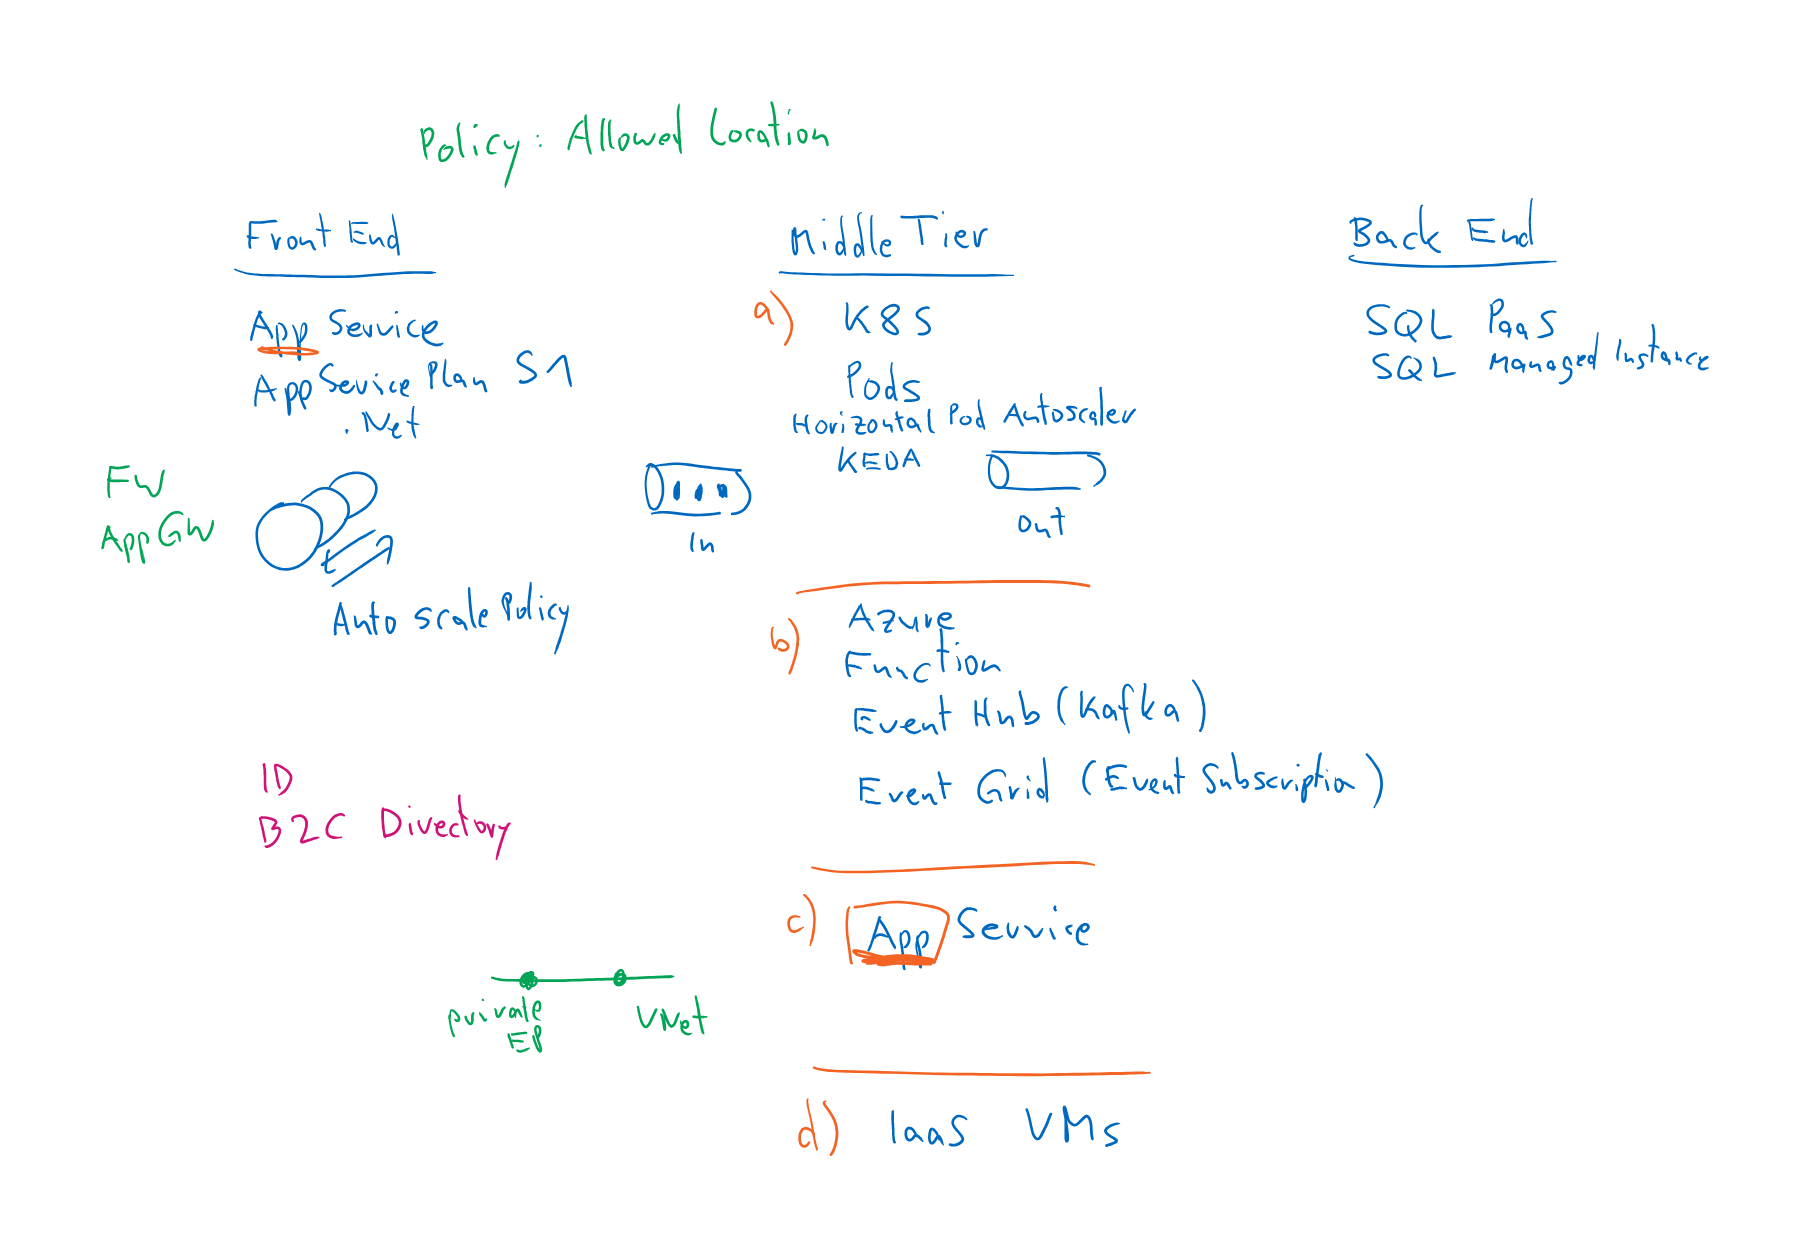 Policy: Allowed Location
Front End
App Service
App Service Plan S1
.Net
FW
AppGW
Auto scale Policy
ID
B2C Directory
private
EP
VNet
Middle Tier
a) K8S
Pods
Horizontal Pod Autoscaler
KEDA
In
Out
b) Azure
Function
Event Hub (Kafka)
Event Grid (Event Subscription)
c) App Service
d) IaaS VMs
Back End
SQL PaaS
SQL Managed Instance